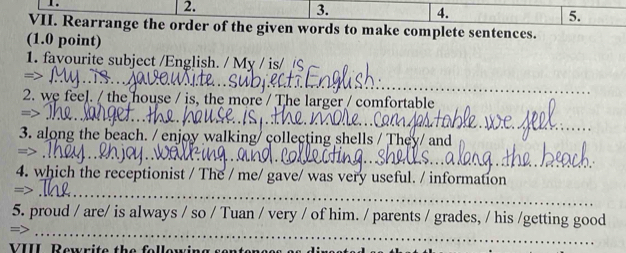 1. 2. 3. 4. 5.
VII. Rearrange the order of the given words to make complete sentences.
(1.0 point)
1. favourite subject /English. / My / is/ is
=> My is favourite subject English.
2. we feel. / the house / is, the more / The larger / comfortable
=> The larger the house is, the more comfortable we feel
3. along the beach. / enjoy walking/ collecting shells / They/ and
=> They enjoy walking and collecting shells along the beach.
4. which the receptionist / The / me/ gave/ was very useful. / information
=> The
5. proud / are/ is always / so / Tuan / very / of him. / parents / grades, / his /getting good
=>
VIII. Rewrite the following sentences as directed so that